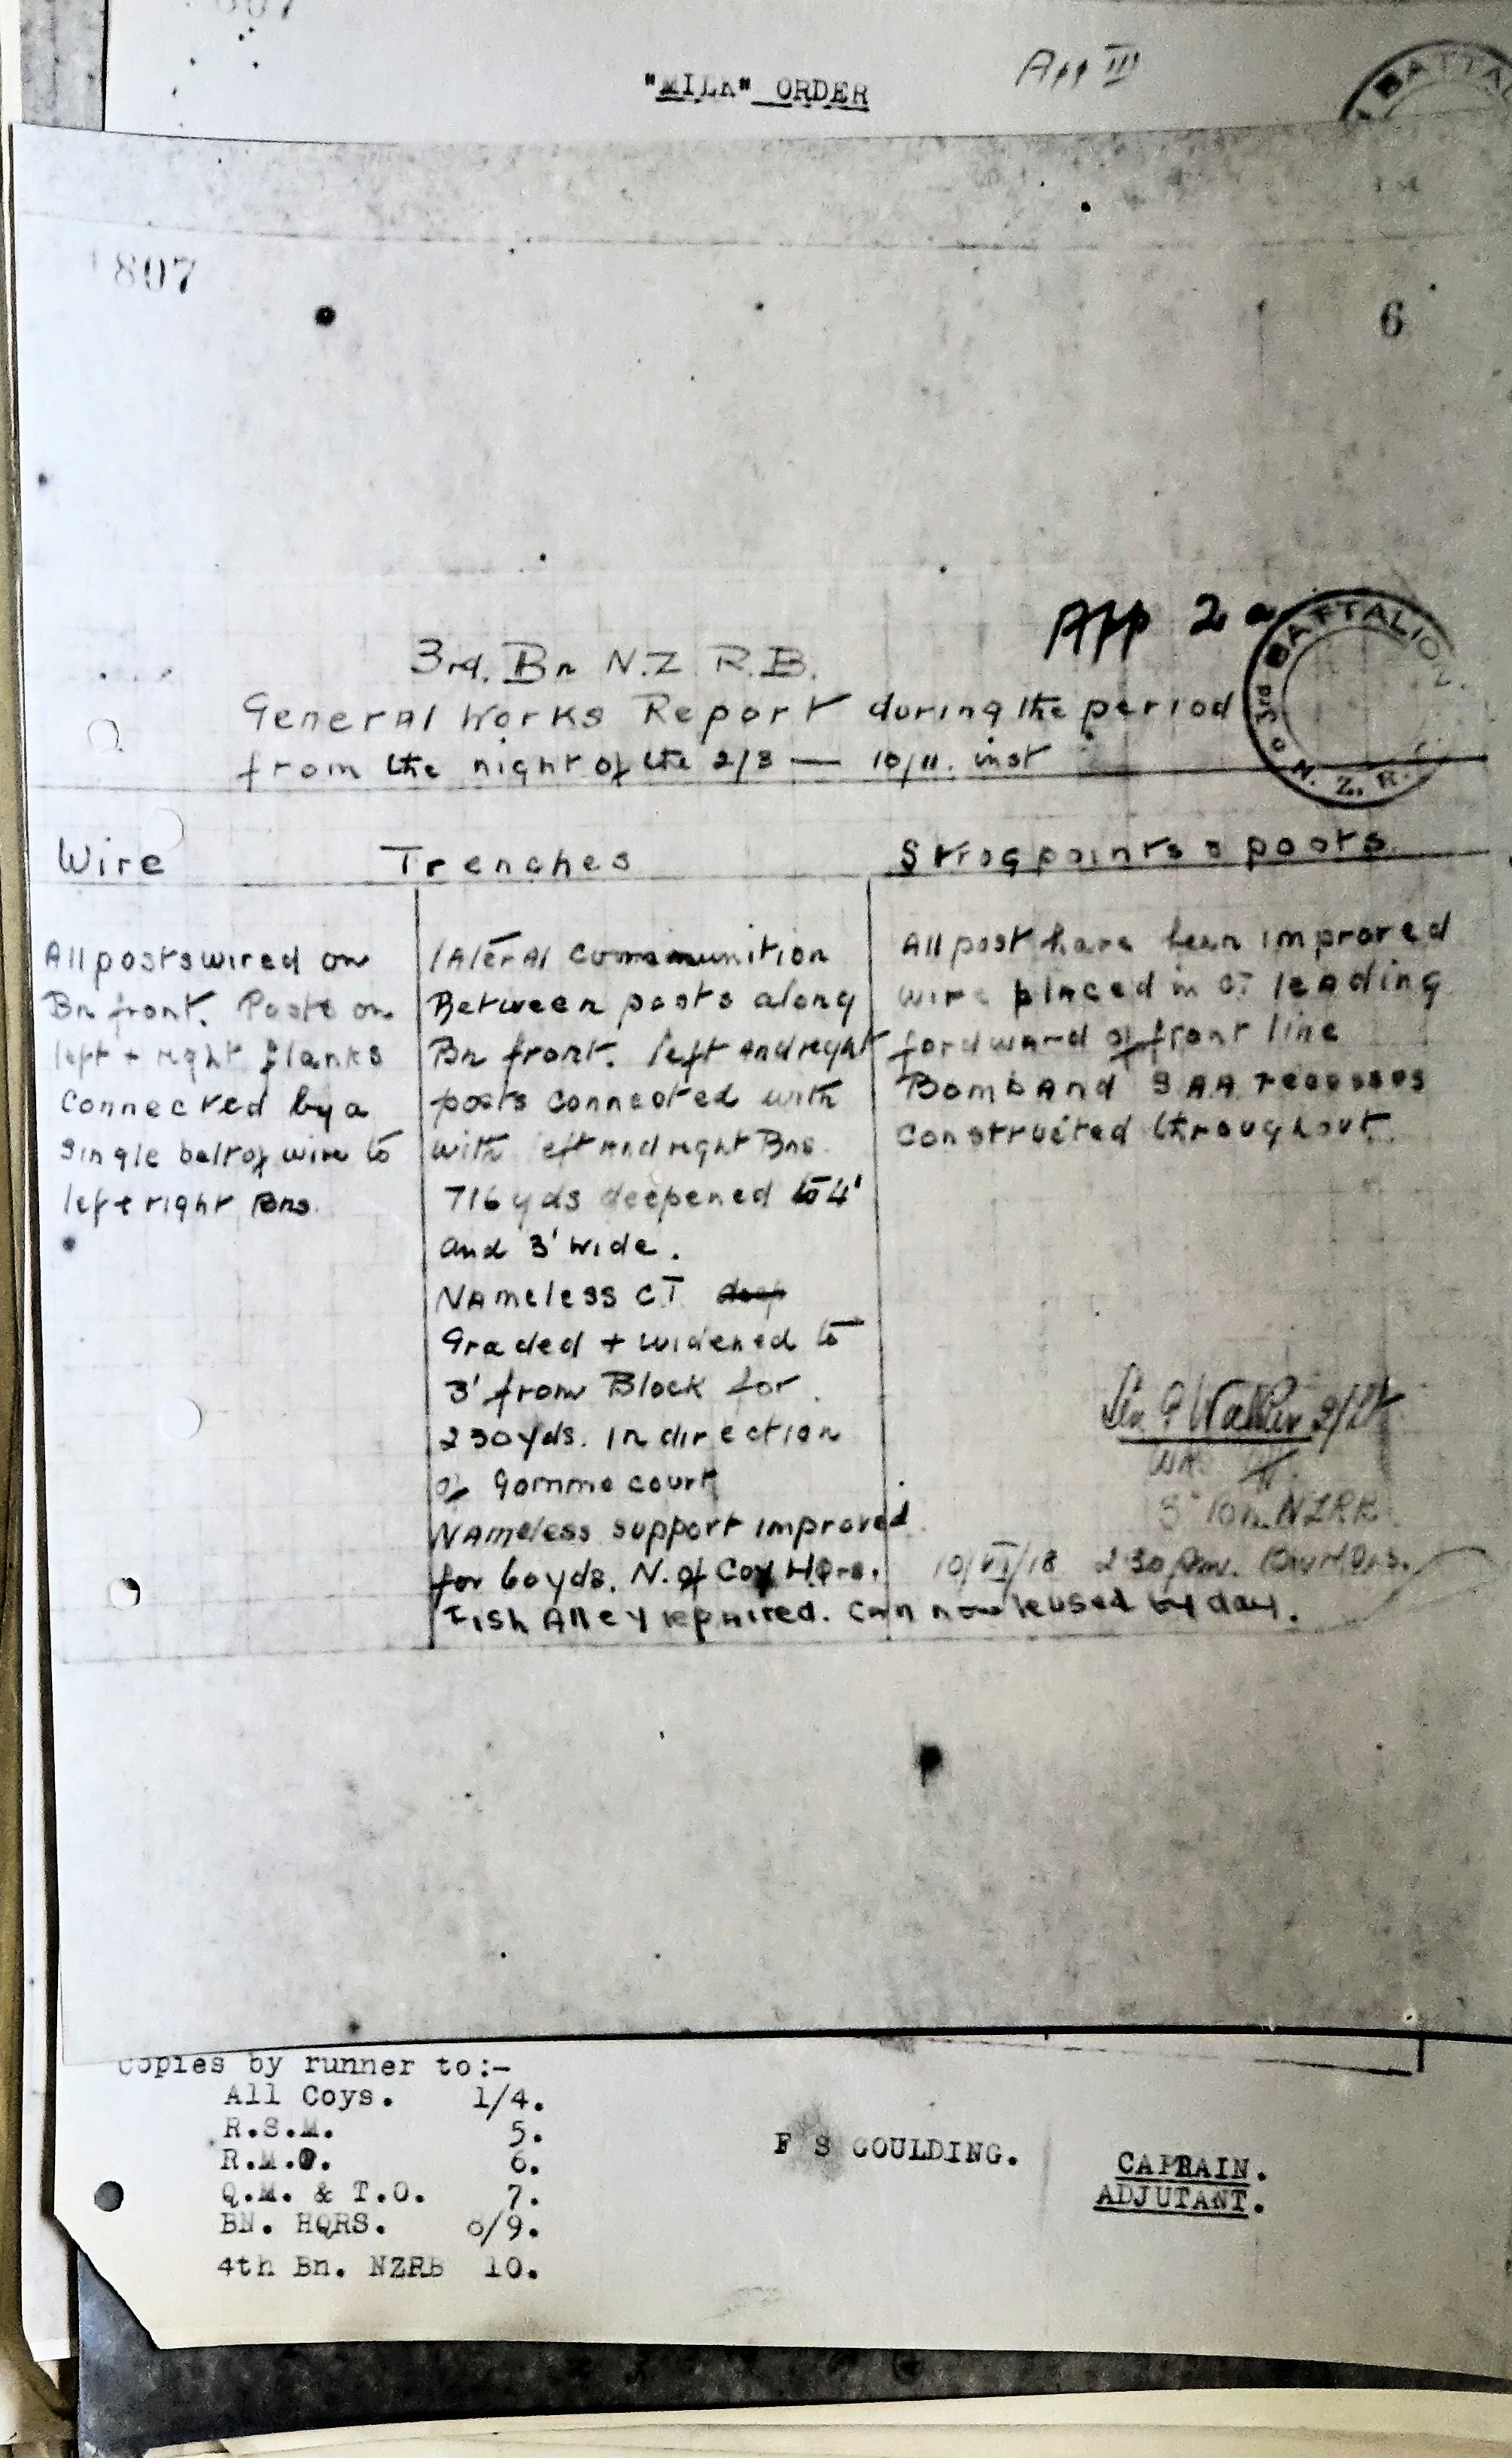 807
"MILK" ORDER
App III
BATTAL
807
6
App 2a
3rd BATTALION N. Z. R.
3rd. Bn N.Z. R.B.
General Works Report during the period
from the night of the 2/3 — 10/11. inst
Wire
All posts wired on
Bn front. Posts on
left + right flanks
Connected by a
Single belt of wire to
left right Bns.
Trenches
lateral Communition
Between posts along
Bn front. left and right
posts connected with
with left and right Bns.
716 yds deepened to 4'
and 3' wide.
Nameless CT deep
Graded + widened to
3' from Block for
230 yds. In direction
of Gommecourt
Nameless support improved
for 60 yds. N. of Coy HQrs.
Fish Alley repaired. Can now be used by day.
Strogpoints & posts
All post have been improved
wire placed in CT leading
fordward of front line
Bomb and SAA recesses
constructed throughout.
Walker 2/Lt
3 Bn NZRB
10/VI/18 2 30 pm. Bn HQrs.
Copies by runner to:-
All Coys. 1/4.
R.S.M. 5.
R.M.O. 6.
Q.M. & T.O. 7.
BN. HQRS. 8/9.
4th Bn. NZRB 10.
F S GOULDING.
CAPTAIN.
ADJUTANT.